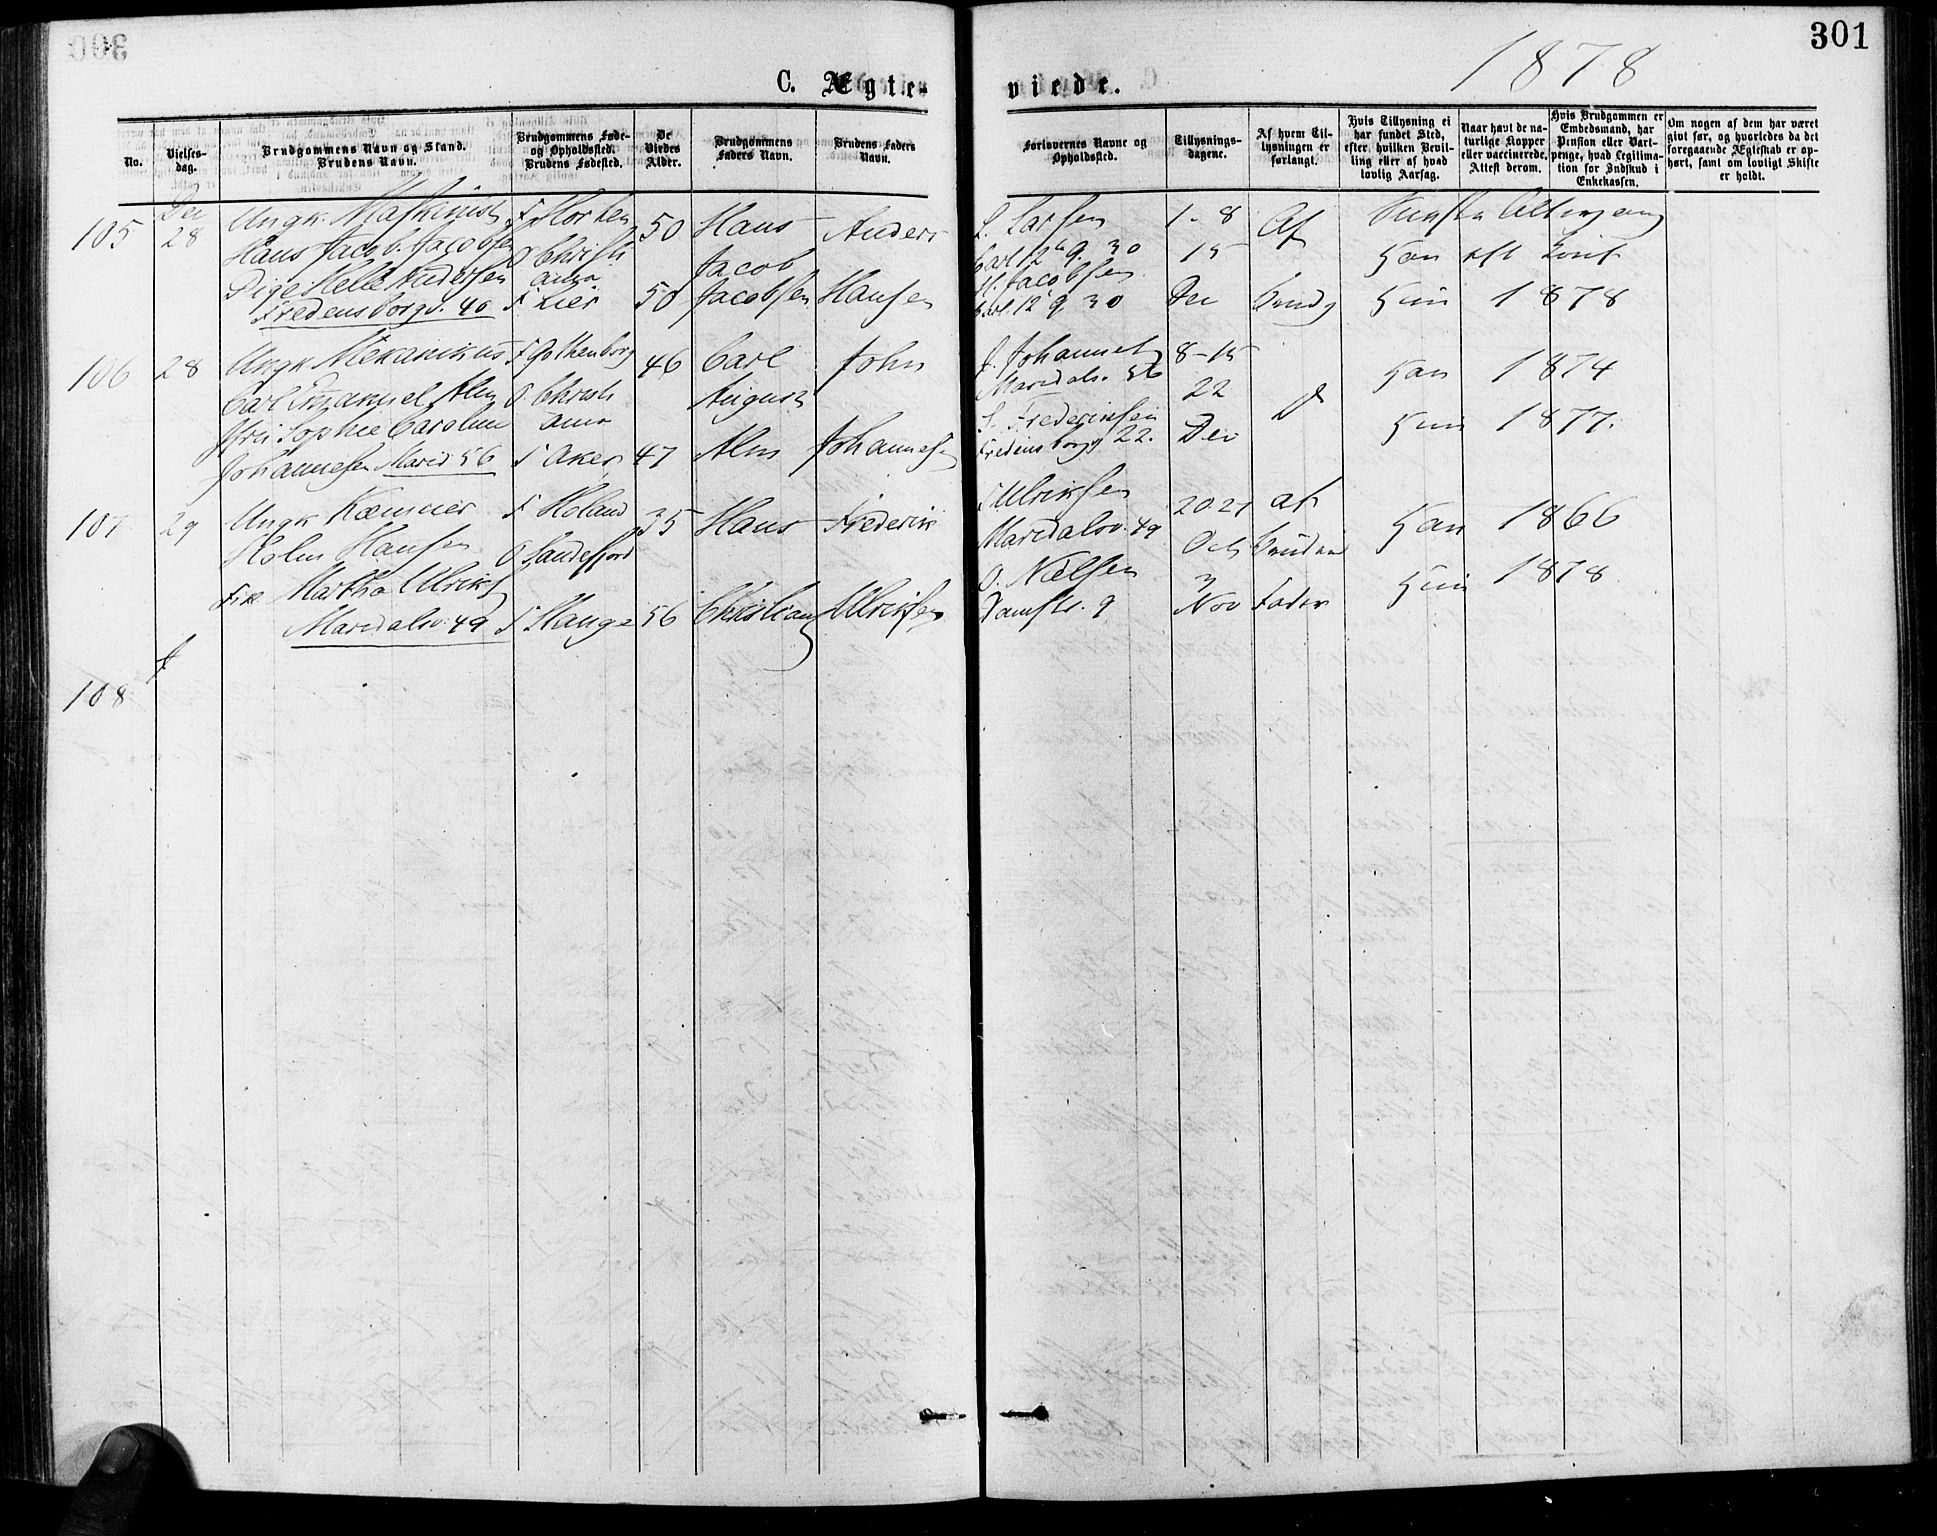 301
1878
C. Ægte-
viede.
No.
Vielses-
dag.
Brudgommens Navn og Stand.
Brudens Navn.
Brudgommens Føde-
og Opholdssted.
Brudens Fødested.
De
Viedes
Alder.
Brudgommens
Faders Navn.
Brudens Faders
Navn.
Forlovernes Navne og
Opholdssted.
Tillysnings-
dagene.
Af hvem Til-
lysningen er
forlangt.
Hvis Tillysning ei
har fundet Sted,
efter hvilken Bevil-
ling eller af hvad
lovlig Aarsag.
Naar havt de na-
turlige Kopper
eller vaccinerede,
Attest derom.
Hvis Brudgommen er
Embedsmand, har
Pension eller Vart-
penge, hvad Legitima-
tion for Indskud i
Enkekassen.
Om nogen af dem har været
givt før, og hvorledes da det
foregaaende Ægteskab er op-
hørt, samt om lovligt Skifte
er holdt.
105 Dec 28
Ungk. Maskinist
Hans Jacob Jacobsen
Pige Helle Andersen
Fredensborgv. 40
F Horten
O Christi
ania
F Lier
50
50
Hans
Jacob
Jacobsen
Anders
Hansen
L. Larsen
Carl 12 g. 30
H. Jacobsen
Carl 12 g 30
1-8
15
Dec
Af
Han
Hun 1878
106 28
Ungk Mekanikus
Carl Emanuel Alm
Sophie Caroline
Johannesen Marid 56
F Gothenborg
O Christi
ania
F Aker
46
47
Carl
August
Alm
John
Johannesen
J. Johannesen
Maridalsv. 56
S. Frederiksen
Fredensborgv 22.
8-15
22
Dec
Han 1874
Hun 1877.
107 29
Ungk Kæmner
Holm Hansen
Frk Martha Ulriks
Maridalsv. 49
F Holand
O Sandefjord
F Hauge
35
56
Hans
Christian
Frederik
Ulriksen
F Ulriksen
Maridalsv. 49
O. Nielsen
9
20 27
Oct
3
Nov
af
Brudens
Fader
Han 1866
Hun 1878
108